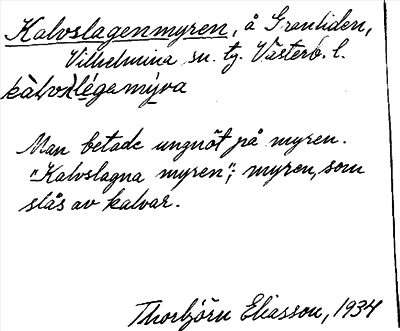 Kalvslagenmyren, å Granliden,
Vilhelmina sn. tg. Västerb. l.
kàlv)légamýra
Man betade ungnöt på myren.
"Kalvslagna myren"; myren, som
slås av kalvar.
Thorbjörn Eliasson, 1934